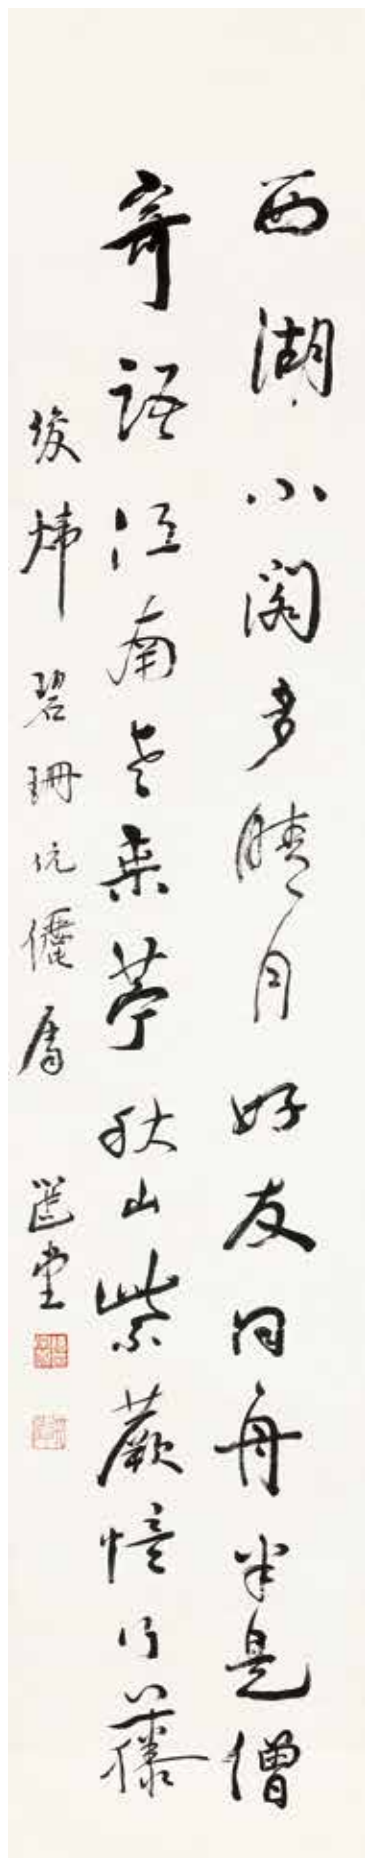 西湖小閣多晴月好友同舟半是僧
寄語江南老桒苧秋山紫蕨憶行藤
俊煒碧珊伉儷屬 選堂